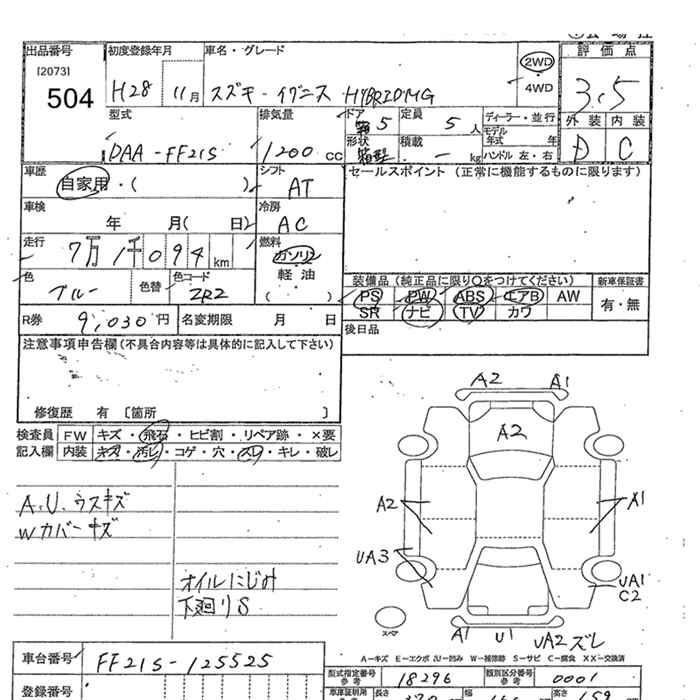 出品番号 初度登録年月 車名・グレード 評価点
[2073]
504
H28 11月 スズキ・イグニス HYBRID MG
2WD
4WD
3.5
型式 排気量 ドア 5 定員 5人 ディーラー・並行
モデル
年式 年
形状 箱型 積載 - kg ハンドル 左・右
外装 内装
D C
DAA-FF21S 1200cc
車歴 シフト セールスポイント (正常に機能するものに限ります)
自家用・( ) AT
車検 冷房
年 月( 日) AC
走行 燃料
7万1千094km ガソリン
軽油
( )
色 ブルー 色替 色コード ZR2
装備品 (純正品に限り○をつけてください) 新車保証書
PS PW ABS エアB AW 有・無
SR ナビ TV カワ
R券 9,030円 名変期限 月 日
後日品
注意事項申告欄(不具合内容等は具体的に記入して下さい)
修復歴 有 〔箇所 〕
検査員 FW キズ・飛石・ヒビ割・リペア跡・×要
記入欄 内装 キズ・汚レ・コゲ・穴・スレ・キレ・破レ
A.U.ウスキズ
Wカバーキズ
オイルにじみ
下廻りS
A2 A1
A2
A2 A1
UA3
UA1
C2
スペア
A1 U1 UA2 ズレ
A-キズ E-エクボ JU-凹み W-補修跡 S-サビ C-腐食 XX-交換済
車台番号 FF21S-125525
型式指定番号 参考 18296 類別区分番号 参考 0001
登録番号
長さ 370 幅 高さ 159